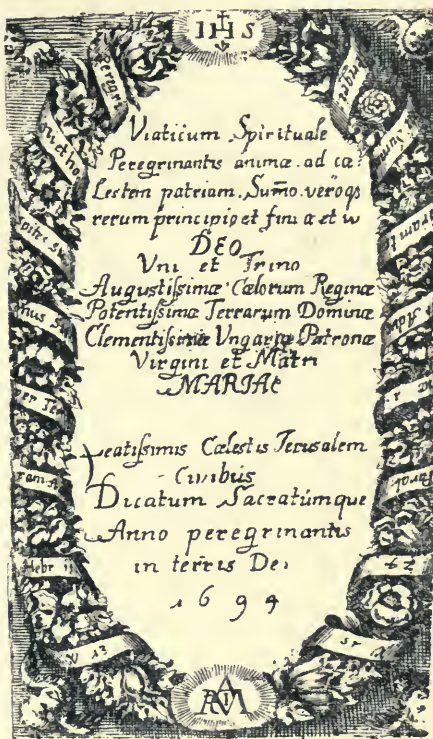 IHS
Viaticum Spirituale
Peregrinantis animæ ad cæ
Lestem patriam. Sum̃o veroq3
rerum principio et fini α et ω
DEO
Vni et Trino
Augustissimæ Cælorum Reginæ
Potentissimæ Terrarum Dominæ
Clementissimæ Vngariæ Patronæ
Virgini et Matri
MARIAE
Beatissimis Cælestis Jerusalem
Civibus
Dicatum Sacratumque
Anno peregrinantis
in terris Dei
1694
Peregri
Hebr ii
V 13